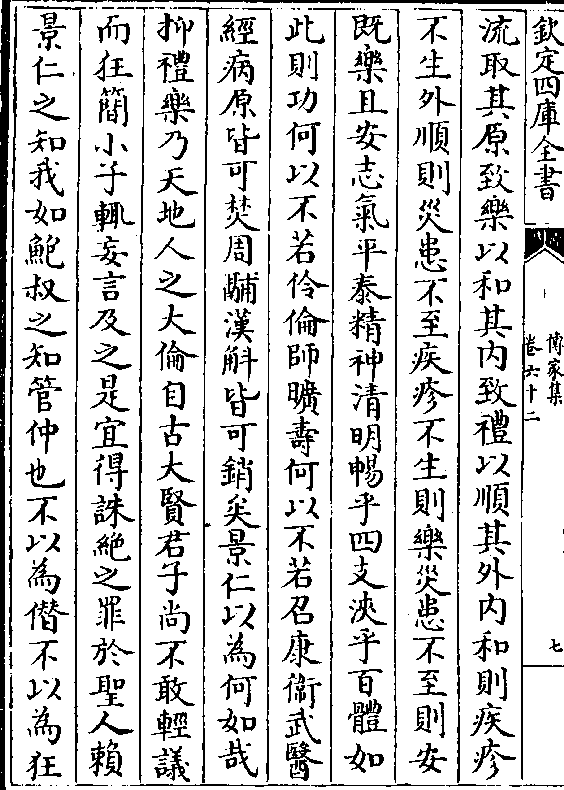 欽定四庫全書
傳家集
卷六十二
七
流取其原致樂以和其内致禮以順其外内和則疾疹
不生外順則災患不至疾疹不生則樂災患不至則安
既樂且安志氣平泰精神清明暢乎四支浹乎百體如
此則功何以不若伶倫師曠壽何以不若召康衞武醫
經病原皆可焚周鬴漢斛皆可銷矣景仁以為何如哉
抑禮樂乃天地人之大倫自古大賢君子尚不敢輕議
而狂簡小子輒妄言及之是宜得誅絶之罪於聖人賴
景仁之知我如鮑叔之知管仲也不以為僭不以為狂